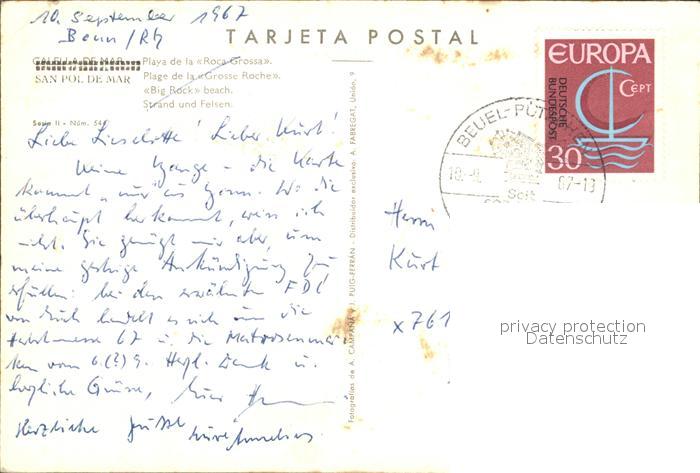 10. September 1967
Bonn/Rh
TARJETA POSTAL
CALELLA DE MAR
SAN POL DE MAR
Playa de la «Roca Grossa».
Plage de la «Grosse Roche».
«Big Rock» beach.
Strand und Felsen.
Serie II - Núm. 546
Liebe Lieselotte! Lieber Kurt!
Keine Bange - die Karte
kommt "nur" aus Bonn. Wo die
überhaupt herkommt, weiss ich
nicht. Sie genügt mir aber, um
meine gestrige Ankündigung zu
erfüllen: bei dem erwähnten FDC
von Euch handelt es sich um die
67 u. die
vom 6.(?)9. Hzgl. Dank u.
herzliche Grüsse, Euer
Herzliche Grüsse
Fotografías de A. CAMPAÑA y J. PUIG-FERRÁN - Distribuidor exclusivo: A. FABREGAT, Unión, 9
EUROPA
CEPT
DEUTSCHE
BUNDESPOST
30
BEUEL-PÜT
67-13
Herrn
Kurt
x 761
privacy protection
Datenschutz